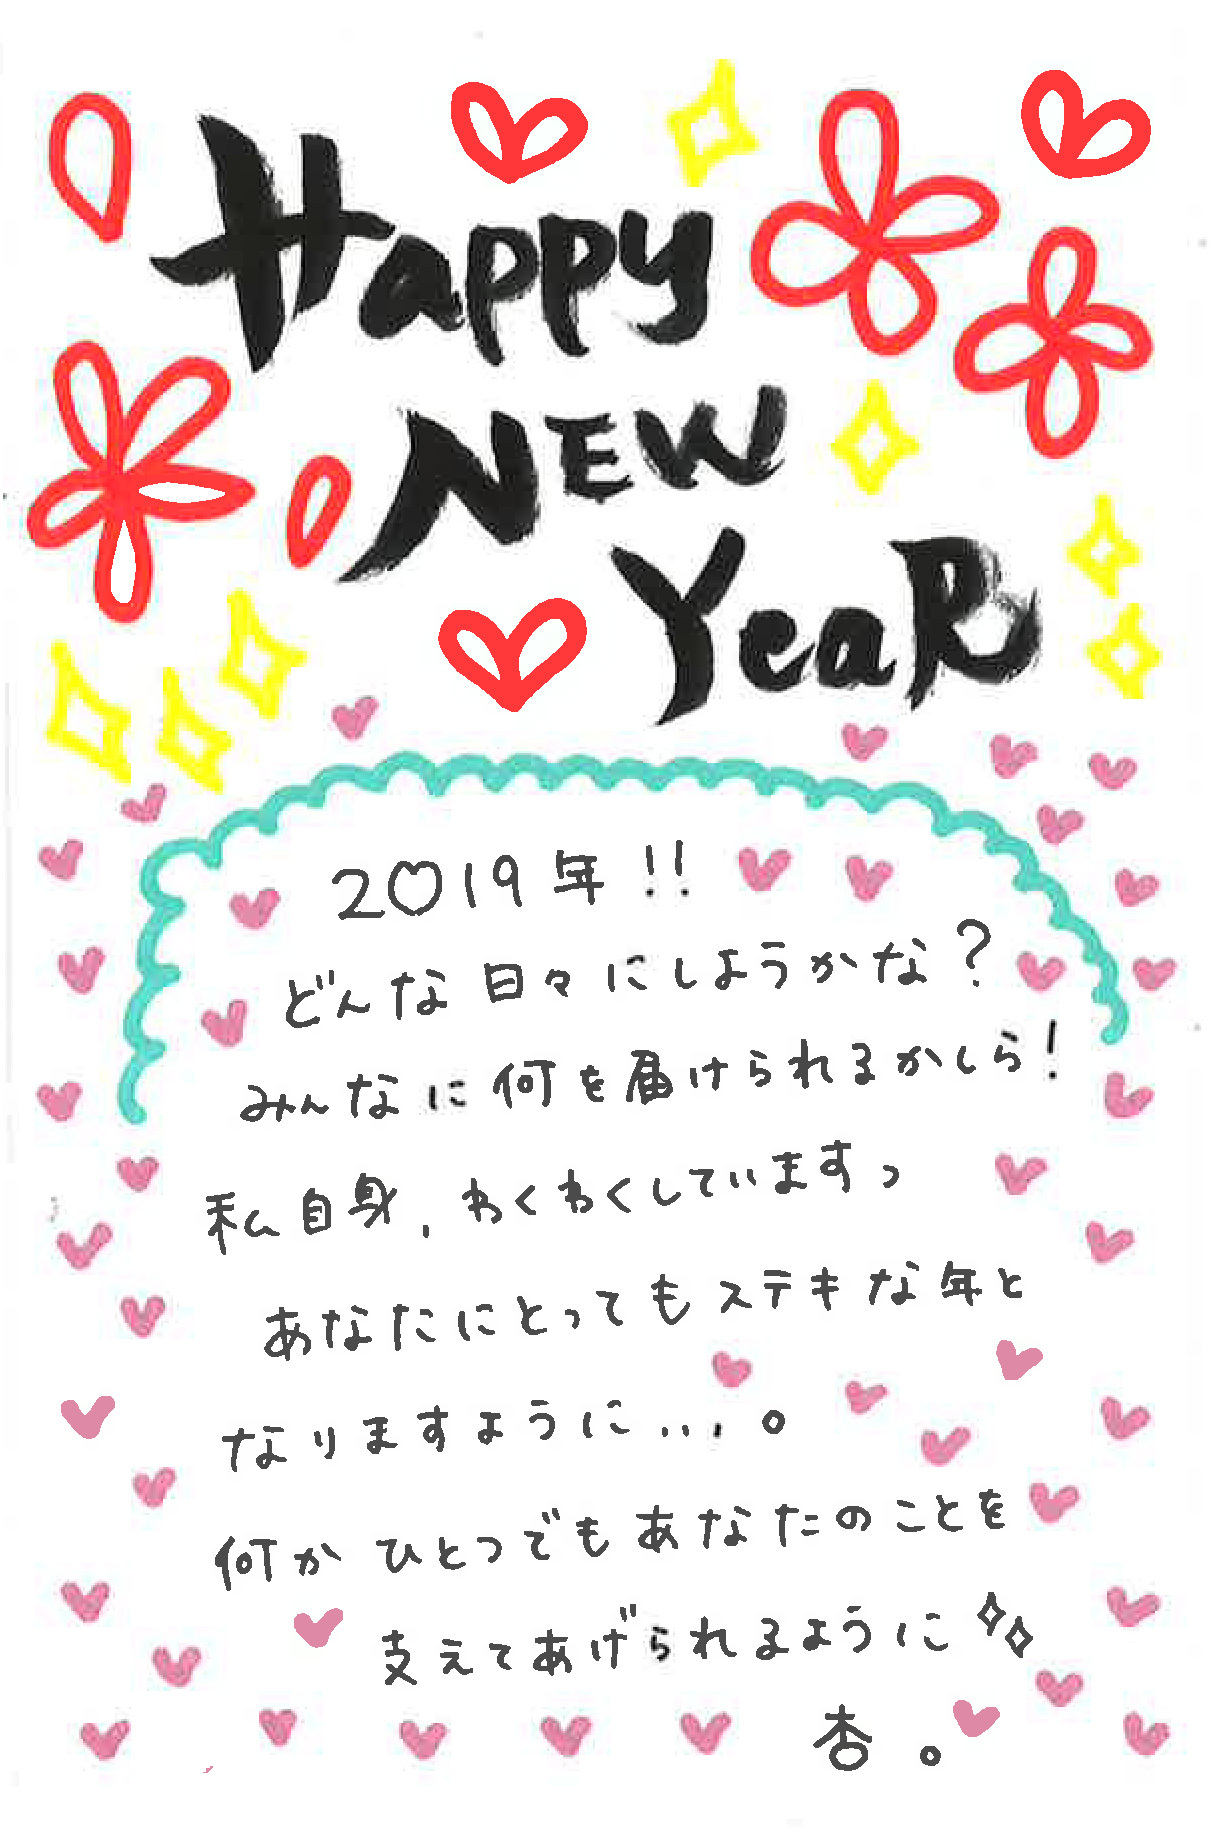 Happy
NEW
YeaR
2019年!!
どんな日々にしようかな?
みんなに何を届けられるかしら!
私自身,わくわくしていますっ
あなたにとってもステキな年と
なりますように...。
何かひとつでもあなたのことを
支えてあげられるように
杏。